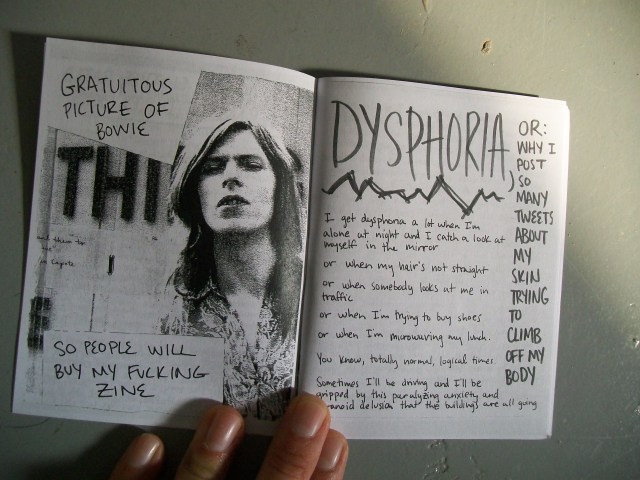 GRATUITOUS
PICTURE OF
BOWIE
THI
and then to
Capote
SO PEOPLE WILL
BUY MY FUCKING
ZINE
DYSPHORIA,
OR:
WHY I
POST
SO
MANY
TWEETS
ABOUT
MY
SKIN
TRYING
TO
CLIMB
OFF MY
BODY
I get dysphoria a lot when I'm
alone at night and I catch a look at
myself in the mirror
or when my hair's not straight
or when somebody looks at me in
traffic
or when I'm trying to buy shoes
or when I'm microwaving my lunch.
You know, totally normal, logical times.
Sometimes I'll be driving and I'll be
gripped by this paralyzing anxiety and
paranoid delusion that the buildings are all going